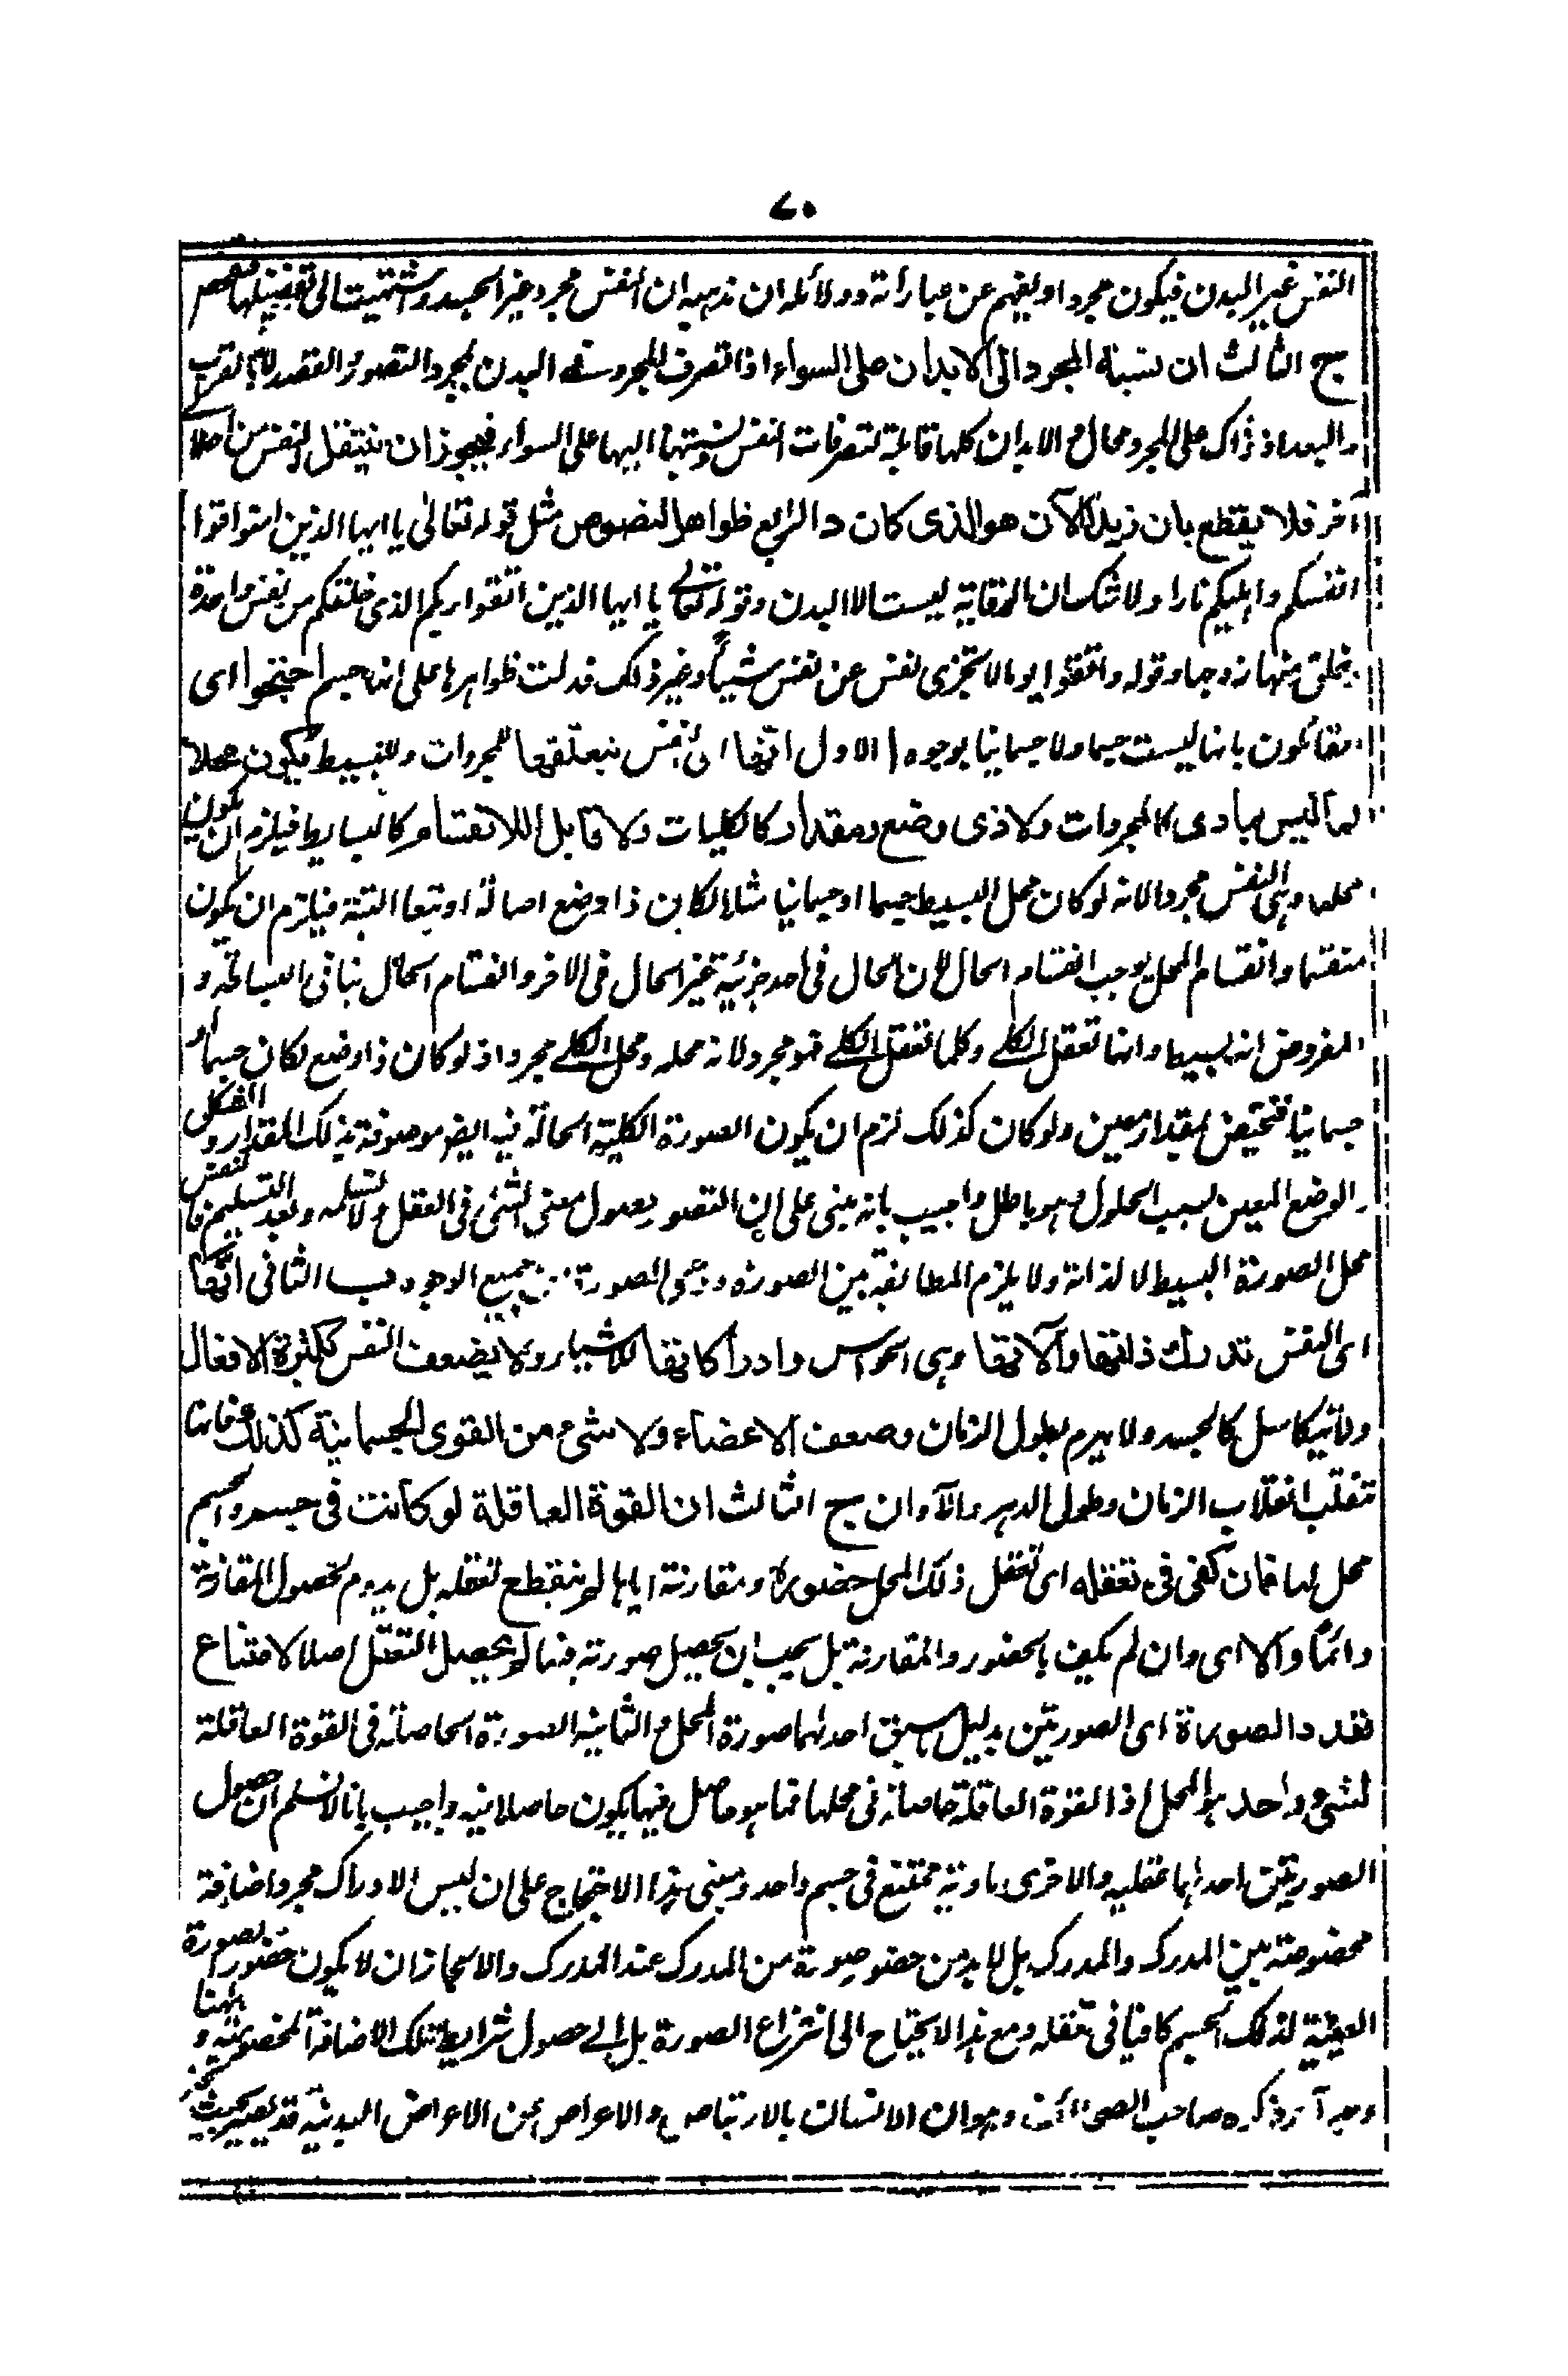 ٧٠
النفس غير البدن فيكون مجردا ويفهم عن عباراته ودلائله ان مذهبه ان النفس مجرد غير الجسد وانتهيت الى تفصيلها
ج الثالث ان نسبة المجرد الى الابدان على السواء اذا تصرف المجرد فى البدن بمجرد التصور والقصد لا بالقرب
والبعد اذ ذاك على المجرد محال والابدان كلها قابلة لتصرفات النفس ونسبتها اليها على السواء فيجوز ان ينتقل نفس من احد الى
آخر فلا يقطع بان زيد الآن هو الذى كان د الرابع ظواهر النصوص مثل قوله تعالى يا ايها الذين امنوا قوا
انفسكم واهليكم نارا ولا شك ان الوقاية ليست الا البدن وقوله تعالى يا ايها الذين اتقوا ربكم الذى خلقكم من نفس واحدة
وخلق منها زوجها وقوله واتقوا يوما لا تجزى نفس عن نفس شيئا وغير ذلك قد دلت ظواهرها على انها جسم احتجوا اى
القائلون بانها ليست جسما ولا جسمانيا بوجوه ا الاول انها اى النفس بتعلقها للمجردات وللبسيط فيكون محلا
لما ليس بمادى كالمجردات ولا ذى وضع ومقدار كالكليات ولا قابل للانقسام كالبسايط فيلزم ان يكون
محلها وهى النفس مجردا لانه لو كان محل البسيط جسما او جسمانيا مثلا لكان ذا وضع اصالة او تبعا البتة فيلزم ان يكون
منقسما وانقسام المحل يوجب انقسام الحال لان الحال فى احد جزئيه غير الحال فى الاخر وانقسام الحال ينافى البساطة و
المفروض انه بسيط وانها تعقل الكلى وكلما تعقل الكلى فهو مجرد لانه محله ومحل الكلى مجرد اذ لو كان ذا وضع لكان جسما او
جسمانيا فتختص بمقدار معين ولو كان كذلك لزم ان يكون الصورة الكلية الحالة فيه ايضا موصوفة بذلك المقدار والشكل
والوضع المعين بسبب الحلول وهو باطل واجيب بانه مبنى على ان التصور بحصول معنى الشئ فى العقل ولا نسلمه وبعد التسليم فالنفس
محل الصورة البسيط لا لذاته ولا يلزم المطابقة بين الصورة وذى الصورة من جميع الوجوه ب الثانى انها
اى النفس تدرك ذاتها وآلاتها وهى الحواس وادراكاتها للاشياء ولا يضعف النفس بكثرة الافعال
ولا تتكاسل كالجسد ولا يهرم بطول الزمان وضعف الاعضاء ولا شئ من القوى الجسمانية كذلك فانها
تنقلب انقلاب الزمان وطول الدهر والآوان ج الثالث ان القوة العاقلة لو كانت فى جسم والجسم
محل لها فان كفى فى تعقله اى تعقل ذلك المحل حضوره ومقارنته اياها لم ينقطع تعقله بل يدوم لحصول المقارنة
دائما والا اى وان لم يكف بالحضور والمقارنة بل يجب ان يحصل صورته فيها لم يحصل التعقل اصلا لامتناع
تعدد الصورة اى الصورتين بدليل سبق احدهما صورة المحل والثانية الصورة الحاصلة فى القوة العاقلة
لشئ واحد هو المحل اذ القوة العاقلة حاصلة فى محلها فما هو حاصل فيها يكون حاصلا فيه واجيب بانا لا نسلم ان حصول
الصورتين احدهما عقليه والاخرى مادية ممتنع فى جسم واحد ومبنى هذا الاحتجاج على ان ليس الادراك مجرد اضافة
مخصوصة بين المدرك والمدرك بل لا بد من حضور صورة من المدرك عند المدرك والا لجاز ان لا يكون حضور الصورة
العينية لذلك الجسم كافيا فى تعقله ومع هذا لا يحتاج الى انتزاع الصورة بل الى حصول شرايط تلك الاضافة المخصوصة وههنا
وجه آخر ذكره صاحب الصحائف وهو ان الانسان بالارتياض والاعراض عن الاعراض البدنية قد يصير بحيث